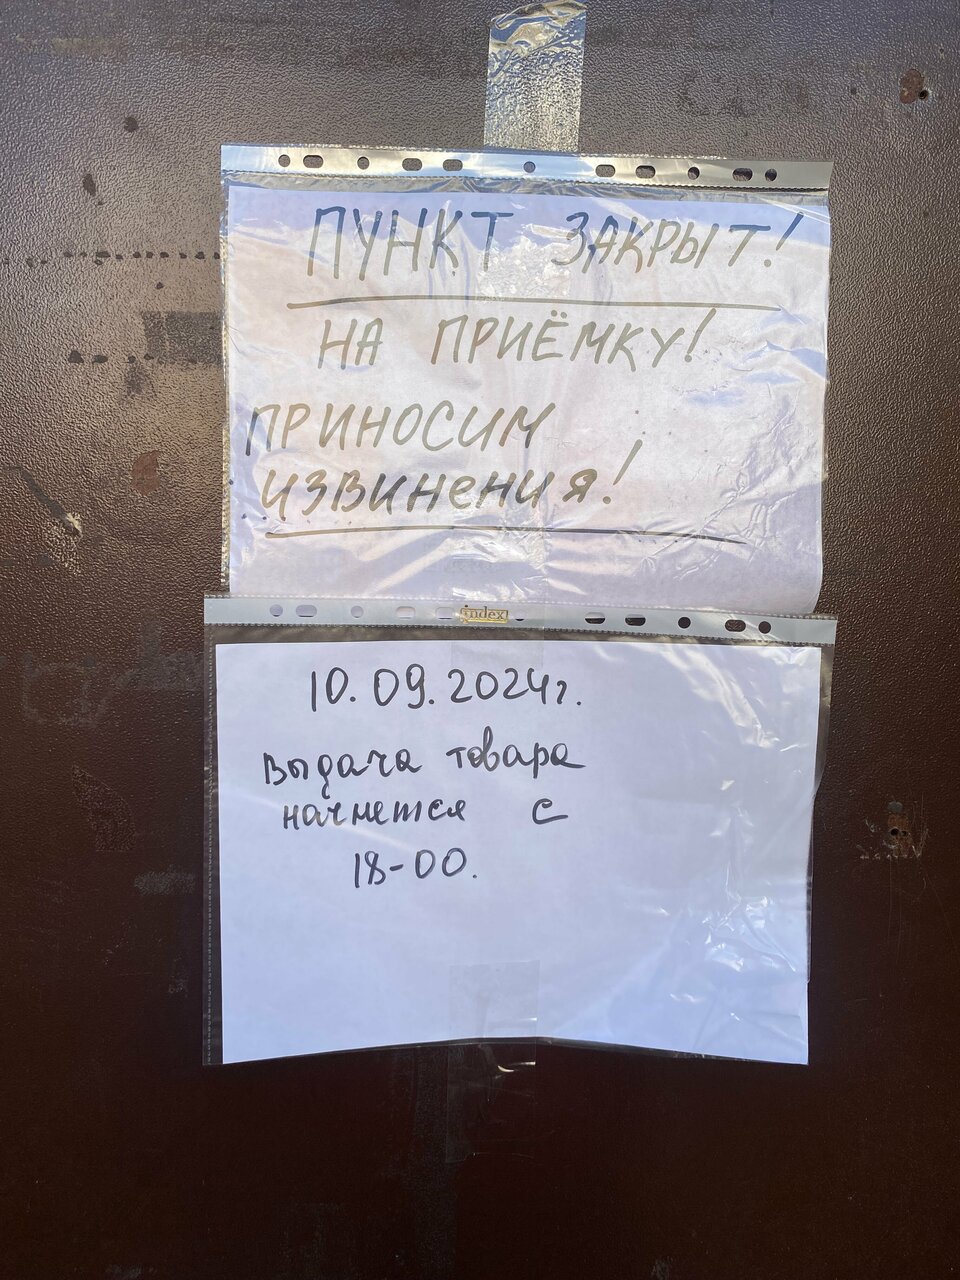 ПУНКТ ЗАКРЫТ!
НА ПРИЁМКУ!
ПРИНОСИМ
ИЗВИНЕНИЯ!
index
10.09.2024г.
Выдача товара
начнется с
18-00.